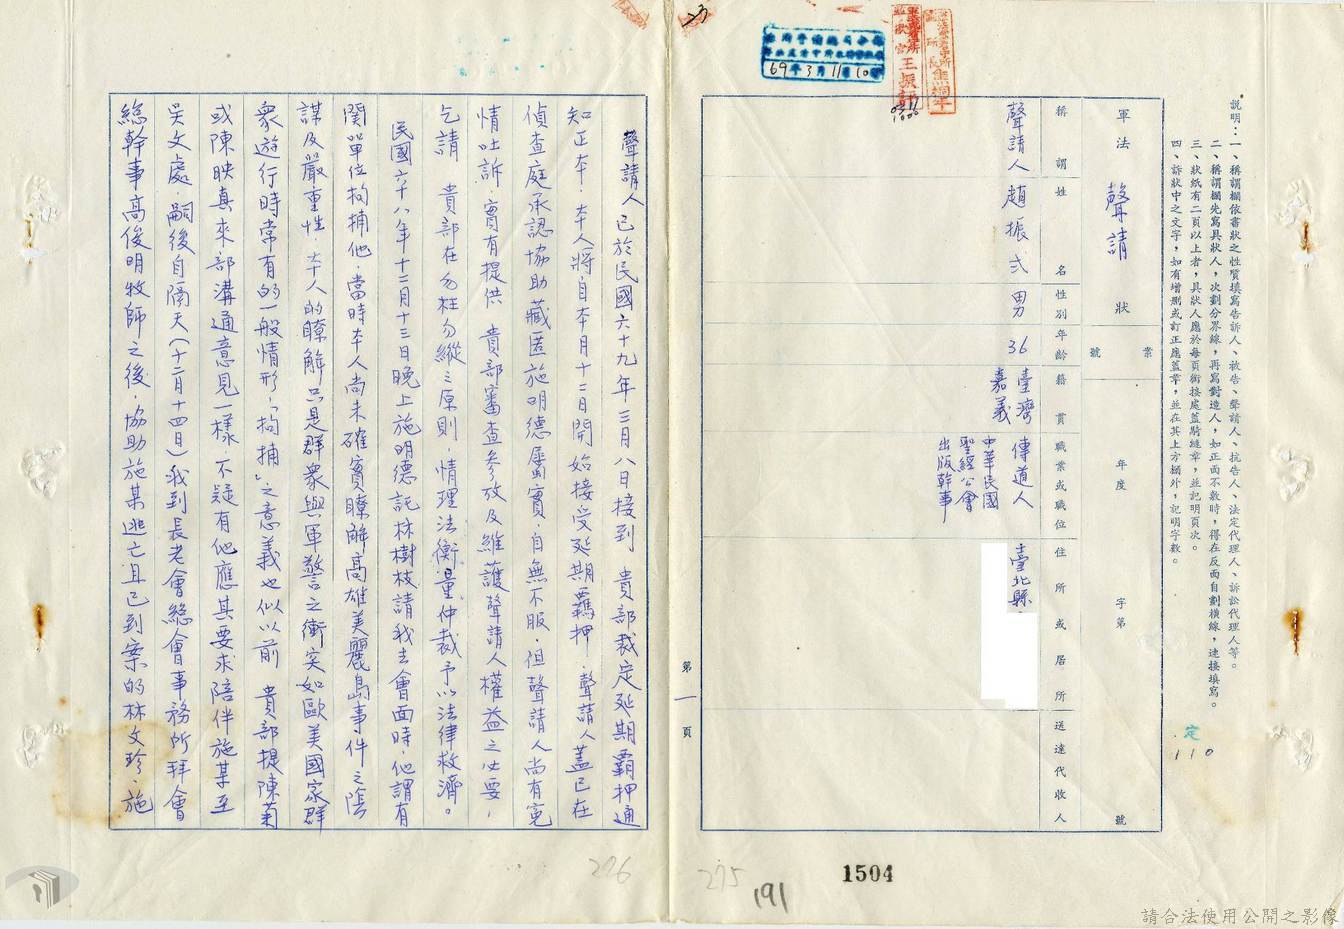 説明：一、稱謂欄依書狀之性質填寫告訴人、被告、聲請人、抗告人、法定代理人、訴訟代理人等。
二、稱謂欄先寫具狀人，次劃分界線，再寫對造人，如正面不敷時，得在反面自劃橫線，連接填寫。
三、狀紙有二頁以上者，具狀人應於每頁銜接處蓋騎縫章，並記明頁次。
四、訴狀中之文字，如有增刪或訂正應蓋章，並在其上方欄外，記明字數。
定
110
軍法 聲請 狀
案號
年度 字第 號
稱謂 姓名 性別 年齡 籍貫 職業或職位 住所或居所 送達代收人
聲請人 趙振弍 男 36 臺灣 傳道人 臺北縣
嘉義 中華民國
聖經公會
出版幹事
69年3月11日
第一頁
聲請人已於民國六十九年三月八日接到 貴部裁定延期羈押通
知正本．本人將自本月十二日開始接受延期羈押．聲請人蓋已在
偵查庭承認協助藏匿施明德屬實．自無不服．但聲請人尚有冤
情吐訴．實有提供 貴部審查參攷及維護聲請人權益之必要，
乞請 貴部在勿枉勿縱之原則．情理法衡量仲裁予以法律救濟。
民國六十八年十二月十三日晚上施明德託林樹枝請我去會面時．他謂有
関單位拘捕他．當時本人尚未確實瞭解高雄美麗島事件之陰
謀及嚴重性．本人的瞭解只是群衆與軍警之衝突如歐美國家群
衆遊行時常有的一般情形，「拘捕」之意義也似以前 貴部提陳菊
或陳映真來部溝通意見一樣．不疑有他應其要求陪伴施某至
吳文處．嗣後自隔天（十二月十四日）我到長老會總會事務所拜會
總幹事高俊明牧師之後．協助施某逃亡且已到案的林文珍．施
226
275
191
1504
請合法使用公開之影像